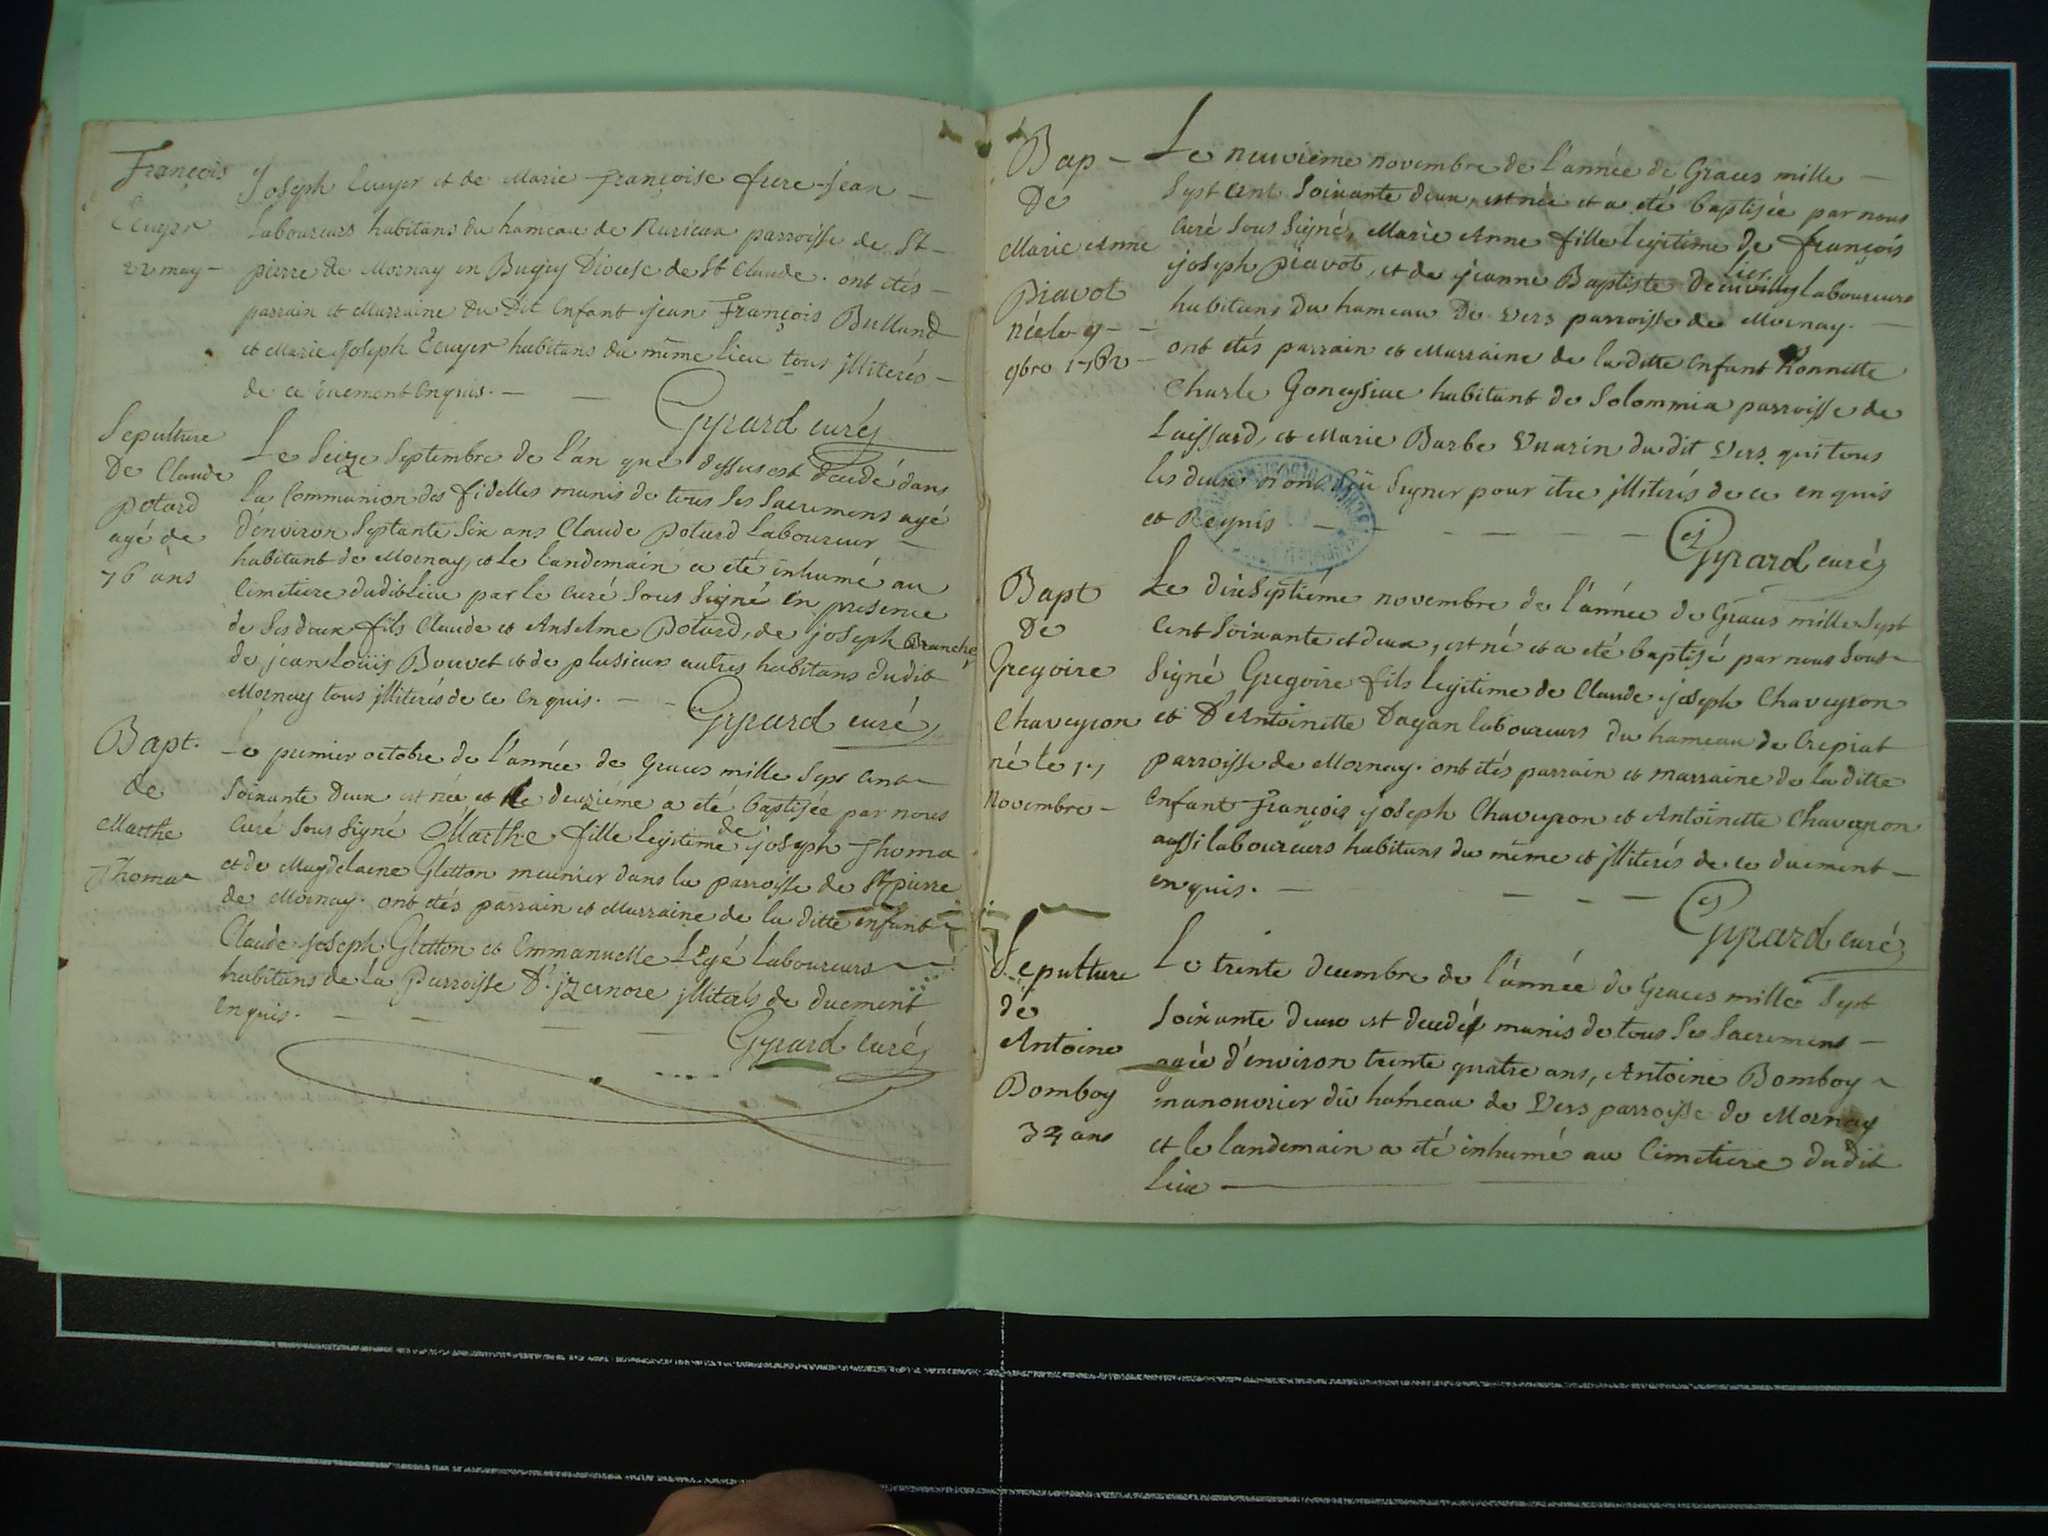 François
Ecuyer
22 may -
Joseph Ecuyer et de Marie françoise fure-jean -
Laboureurs habitans du hameau de Nurieux parroisse de St -
pierre de Mornay en Bugey Diocese de St Claude. ont étés -
parrain et Marraine du Dit enfant jean François Bulland
et Marie joseph Ecuyer habitans du même lieu tous jlliterés -
de ce duement enquis. - -
Gyrard curé
Sepulture
De Claude
potard
agé de
76 ans
Le seize septembre de l'an que dessus est decedé dans
la Communion des fidelles munis de tous ses sacremens agé
d'environ septante six ans Claude potard Laboureur -
habitant de Mornay, et le landemain a été inhumé au
Cimetiere dudit lieu par le curé sous signé en presence
de ses deux fils Claude et Anselme Potard, de joseph Branche,
de jean Loüis Bouvet et de plusieurs autres habitans dudit
Mornay tous jlliterés de ce enquis. - -
Gyrard curé
Bapt.
de
Marthe
Thoma
Le premier octobre de l'année de Graces mille sept cent
soixante deux est née et le deuxiéme a eté baptisée par nous
curé sous signé Marthe fille legitime de joseph Thoma
et de Magdelaene Gletton meunier dans la parroisse de St pierre
de Mornay. ont étés parrain et Marraine de la ditte enfant
Claude joseph Gletton et Emmanuelle Legé laboureurs
habitans de la Parroisse D'jzernore jlliterés de duement
enquis. - - - -
Gyrard Curé
Bap -
De
Marie Anne
Piavot
née le 9 -
9bre 1762 -
Le neuvieme novembre de l'année de Graces mille -
sept cent soixante deux, est née et a eté baptisée par nous
curé sous signé, Marie Anne fille legitime de françois
joseph piavot, et de jeanne Baptiste laboureurs
habitans du hameau De Vers parroisse de Mornay. -
ont étés parrain et Marraine de la ditte enfant Honnette
Charle Goneysiac habitant de Solommia parroisse de
Laissard, et Marie Barbe Vuarin du dit Vers qui tous
les deux n'ont sçü signer pour être jlliterés de ce enquis
et Requis - - - - - -
Gyrard curé
Bapt
De
Gregoire
Chaveyron
né le 17
Novembre -
Le dixseptiéme novembre de l'année de Graces mille sept
cent soixante et deux, est né et a eté baptisé par nous sous
signé Gregoire fils legitime de Claude joseph Chaveyron
et D'Antoinette Dagan laboureurs du hameau de Crepiat
parroisse de Mornay. ont étés parrain et marraine de la ditte
enfant François joseph Chaveyron et Antoinette Chaveyron
aussi laboureurs habitans du même et jlliterés de ce duement -
enquis. - - - -
Gyrard curé
Sepulture
de
Antoine
Bomboy
34 ans
Le trente decembre de l'année de Graces mille sept
soixante deux est decedé munis de tous ses sacremens -
agée d'environ trente quatre ans, Antoine Bomboy
manouvrier du hameau de Vers parroisse de Mornay
et le landemain a eté inhumé au Cimetiere dudit
lieu -